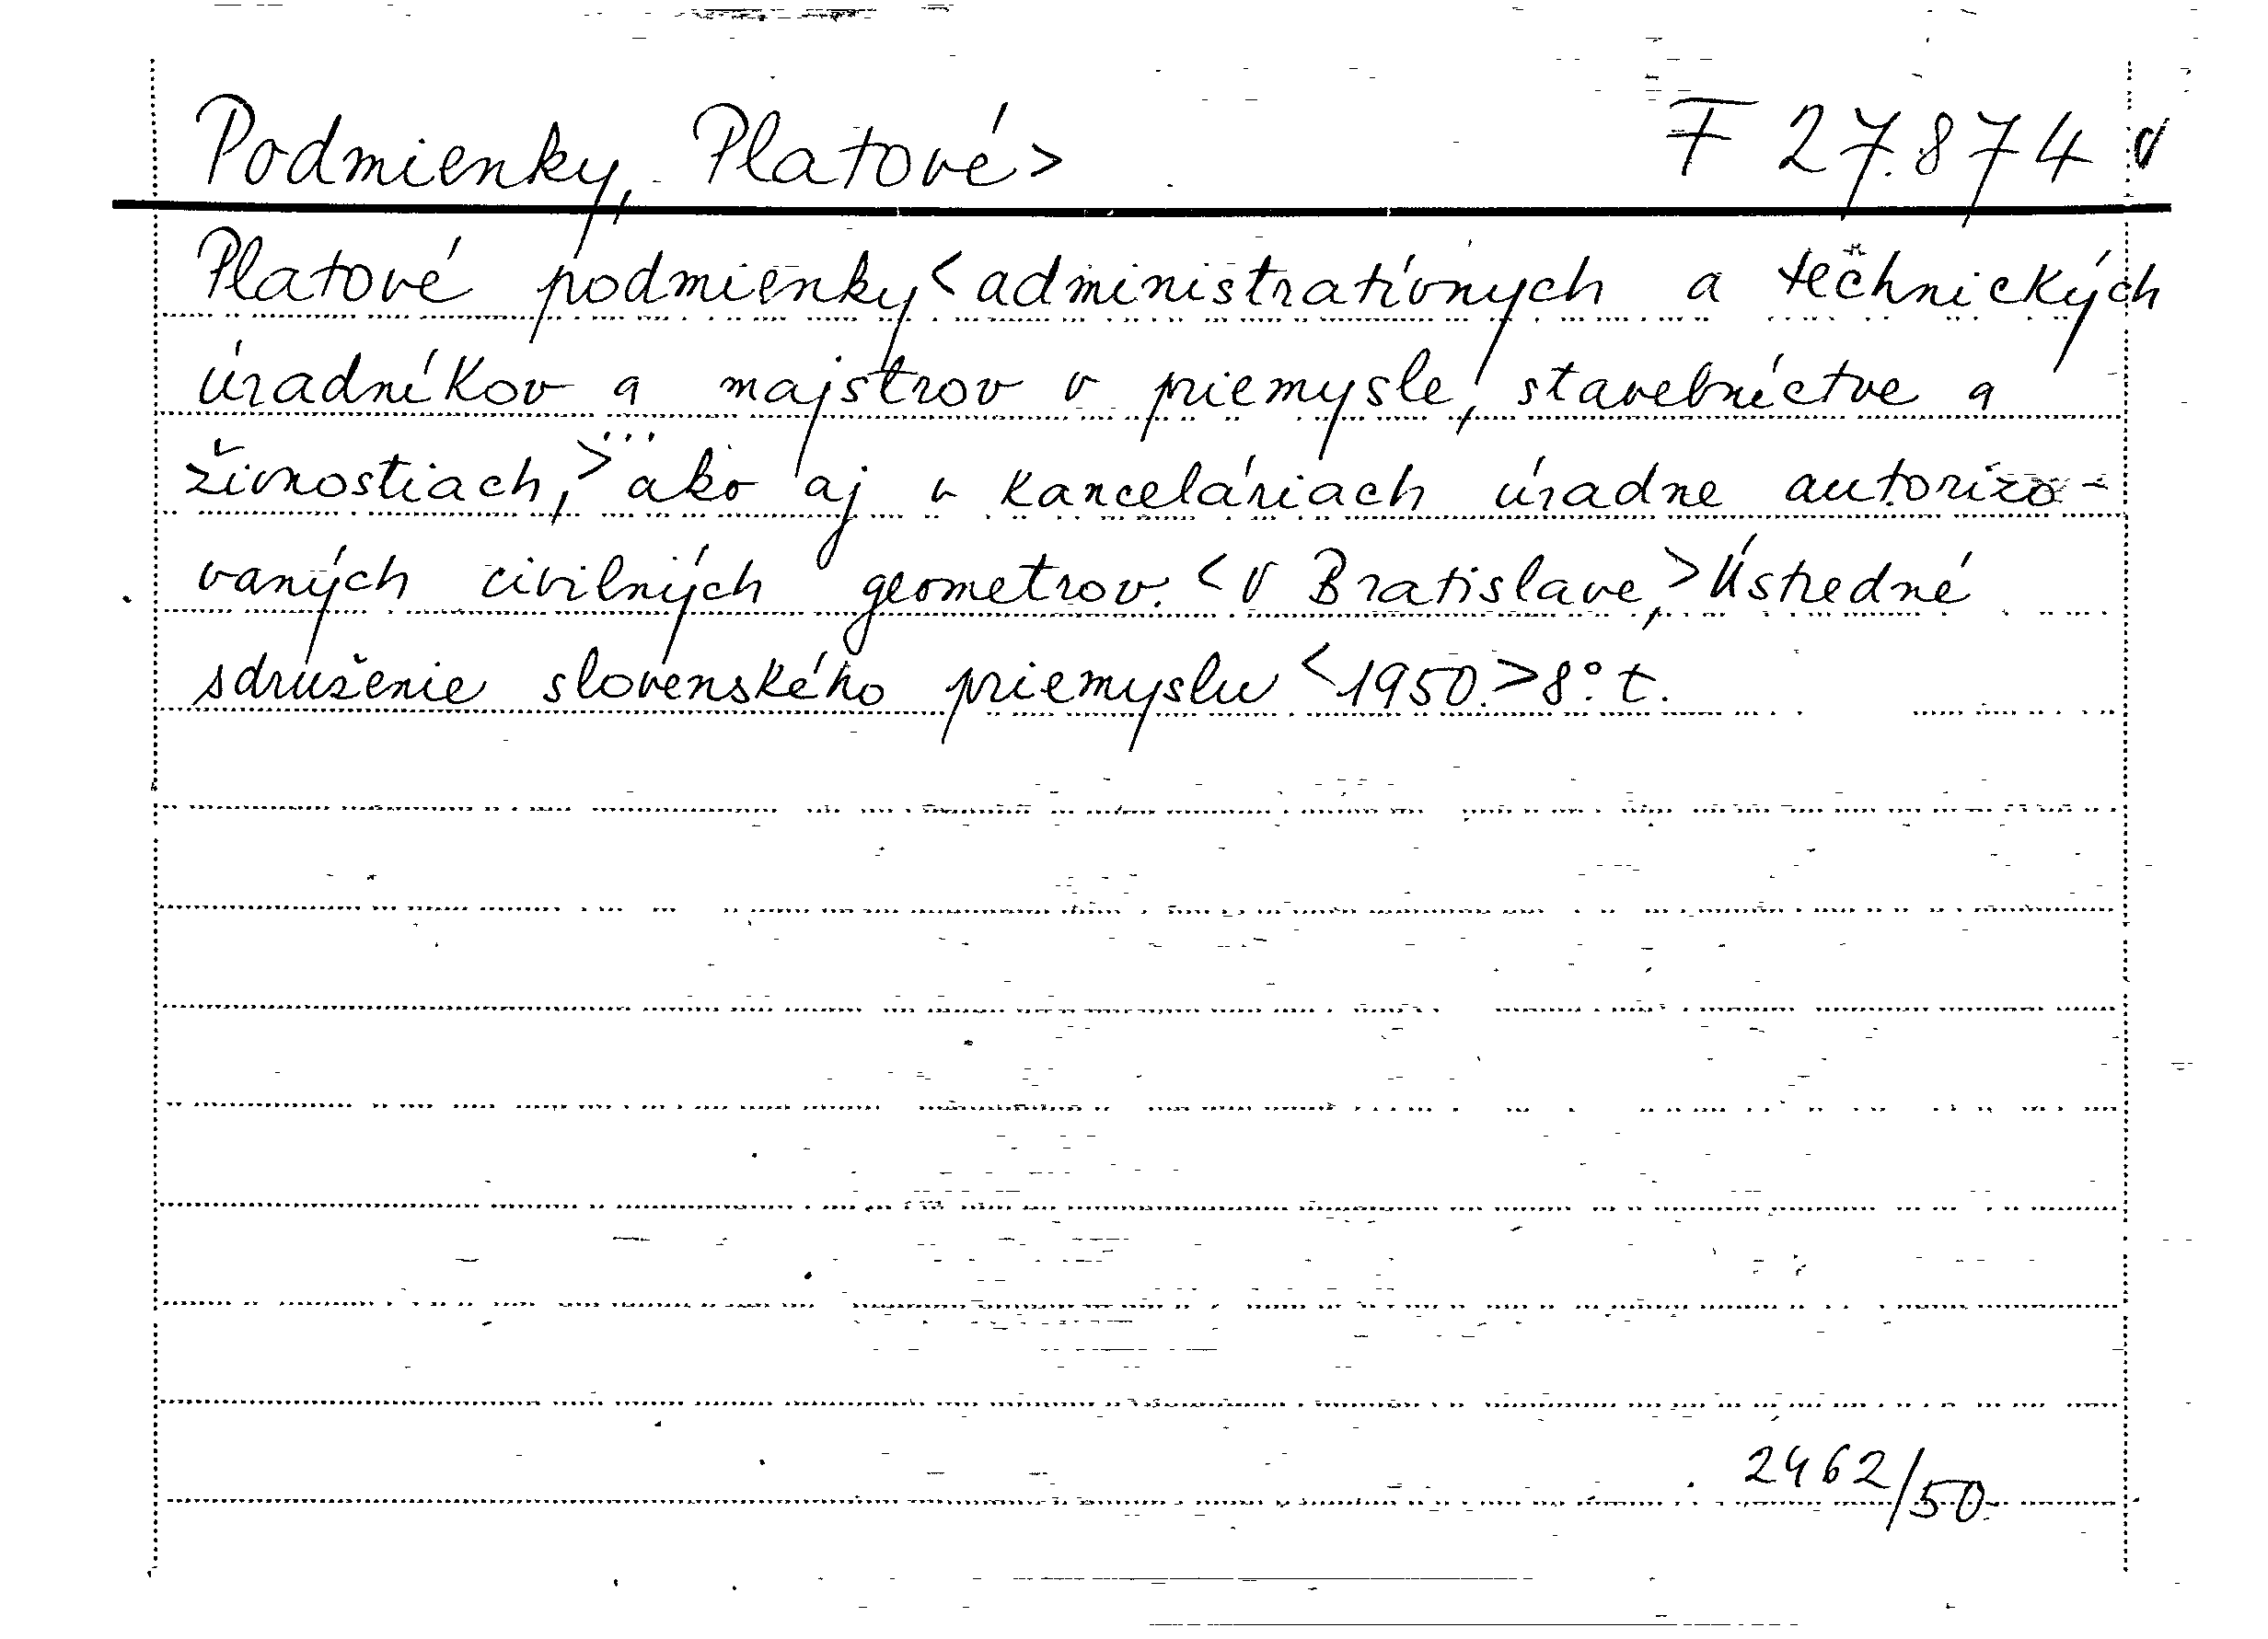 Podmienky, Platové> F 27.874 v
Platové podmienky < administratívnych a technických
úradníkov a majstrov v priemysle, stavebníctve a
živnostiach, > ... ako aj v kanceláriach úradne autorizo-
vaných civilných geometrov. < V Bratislave, > Ústredné
sdruženie slovenského priemyslu < 1950. > 8°. t.
2462/50.